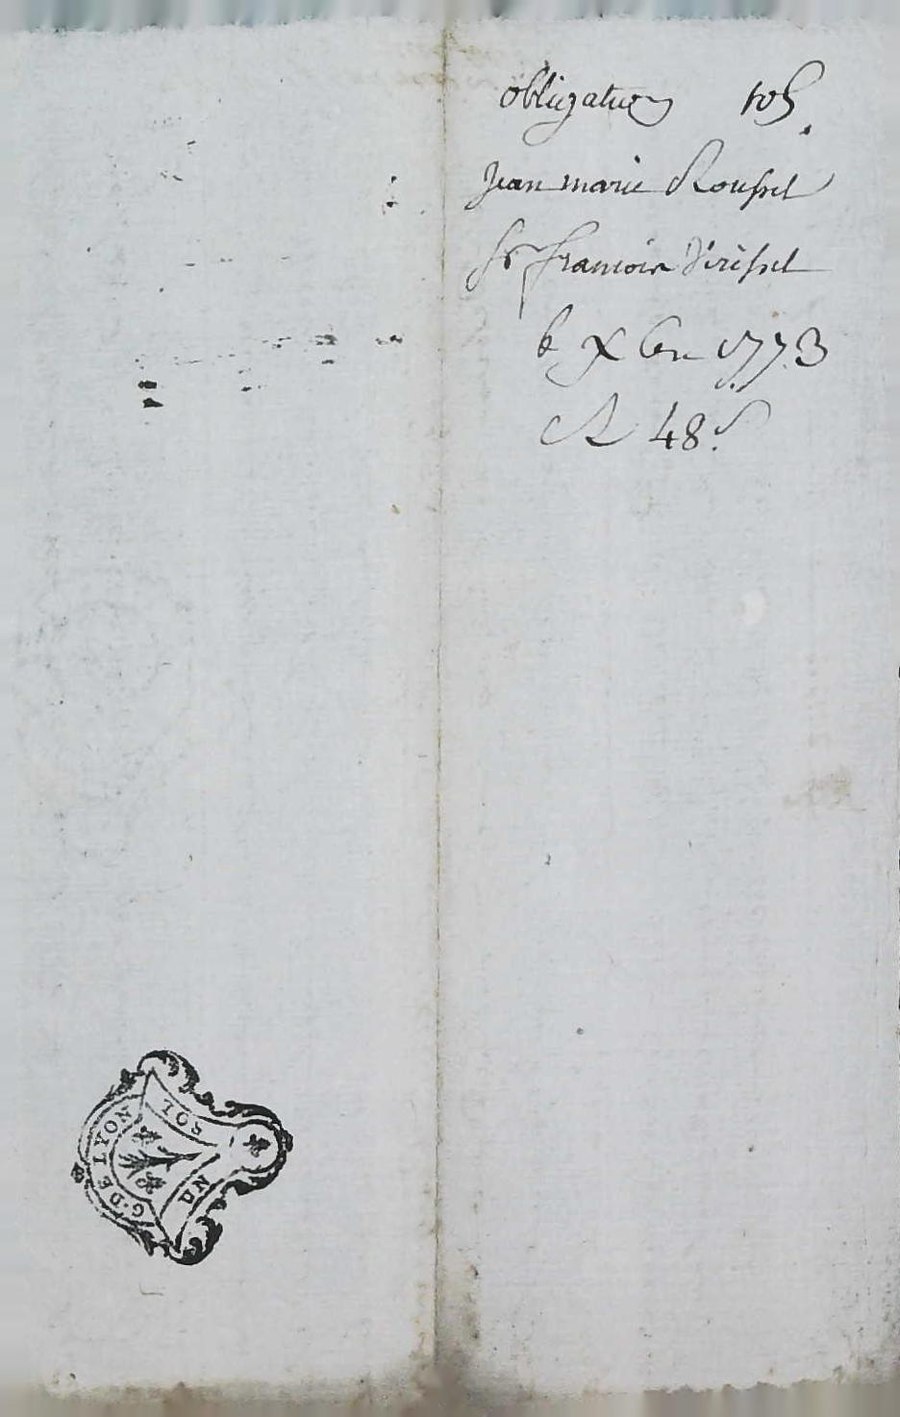 obligation 10ƚ.
Jean marie Roussel
Sr francois
6 Xbre 1773
R 48s.
G. DE LYON
UN SOL